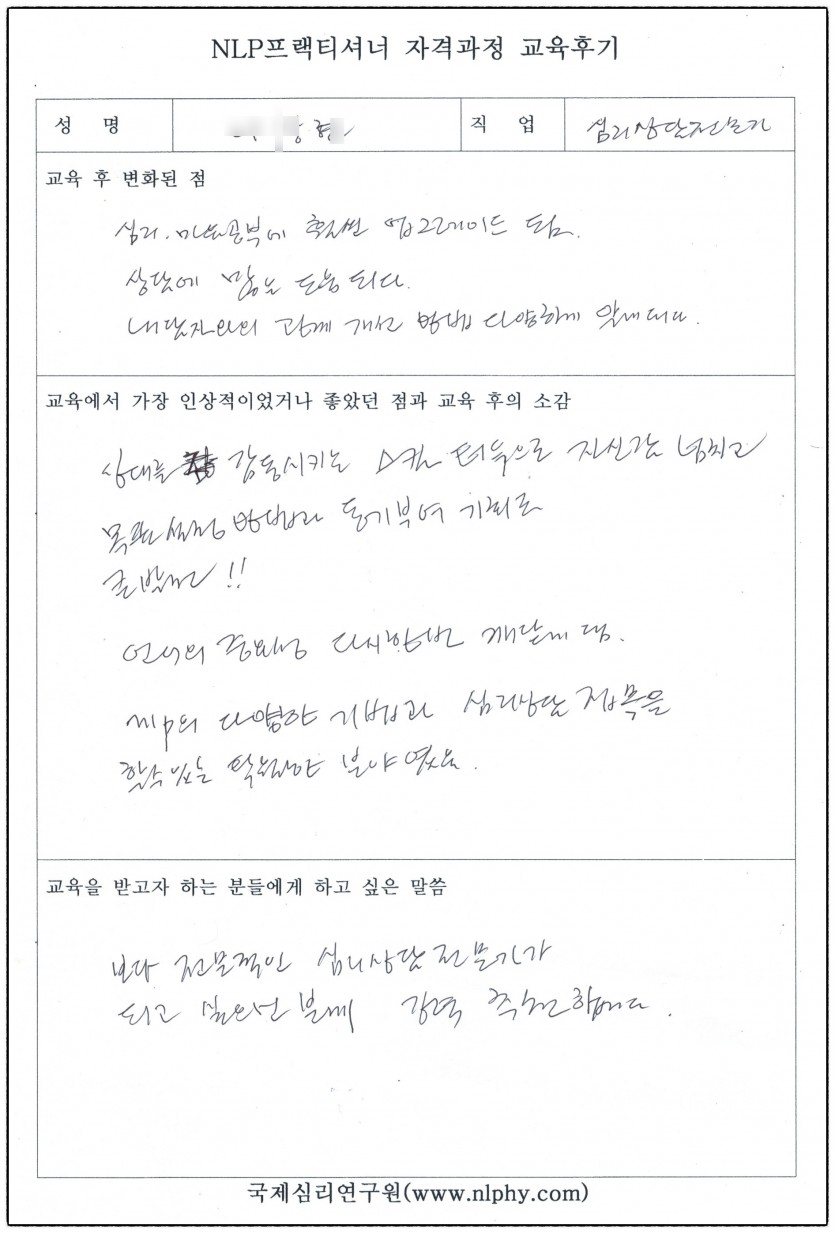 NLP프랙티셔너 자격과정 교육후기
성 명 직 업 심리상담전문가
교육 후 변화된 점
심리.마음공부에 훨씬 업그레이드 됨.
상담에 많은 도움 되다.
내담자와의 관계 개선 방법 다양하게 알게되다.
교육에서 가장 인상적이었거나 좋았던 점과 교육 후의 소감
상대를 감동시키는 스킬 터득으로 자신감 넘치고
목표설정 방법과 동기부여 기회로
출발선!!
언어의 중요성 다시한번 깨닫게 됨.
nlp의 다양한 기법과 심리상담 접목을
할수있는 탁월한 분야였음.
교육을 받고자 하는 분들에게 하고 싶은 말씀
보다 전문적인 심리상담전문가가
되고 싶으신 분께 강력 추천합니다.
국제심리연구원(www.nlphy.com)